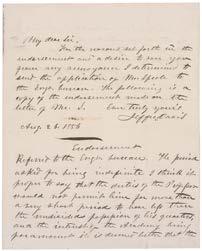 My dear Sir,
For the reasons set forth in the
endorsement and a desire to save you
from any annoyance I determined to
send the application of Mr. Poole to
the Engr. bureau. The following is a
copy of the endorsement made on the
letter of Mr. P.
Very truly yours
Jeffn Davis
Aug. 26 1856
Endorsement
Referred to the Engr. bureau. The period
asked for being indefinite I think it
proper to say that the duties of the Professor
would not permit him for more than
a very short period to have less than
the undivided possession of his quarters
and the interests of the Academy being
paramount it is deemed better that the